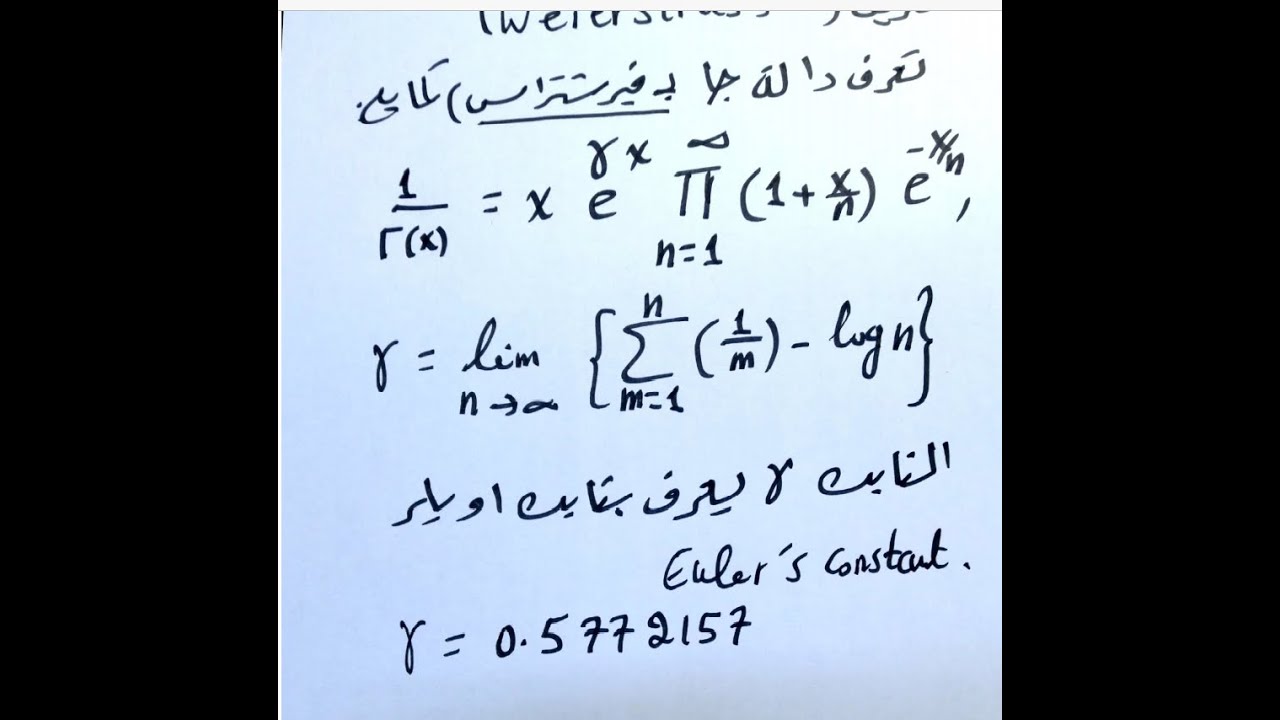 (Weierstrass)
تعرف دالة جا بـ فيرشتراس) كمايلي.
1/Γ(x) = x e^{γx} ∏_{n=1}^{∞} (1 + x/n) e^{-x/n},
γ = lim_{n→∞} { ∑_{m=1}^{n} (1/m) - log n }
الثابت γ يعرف بثابت اويلر
Euler's constant.
γ = 0.5772157